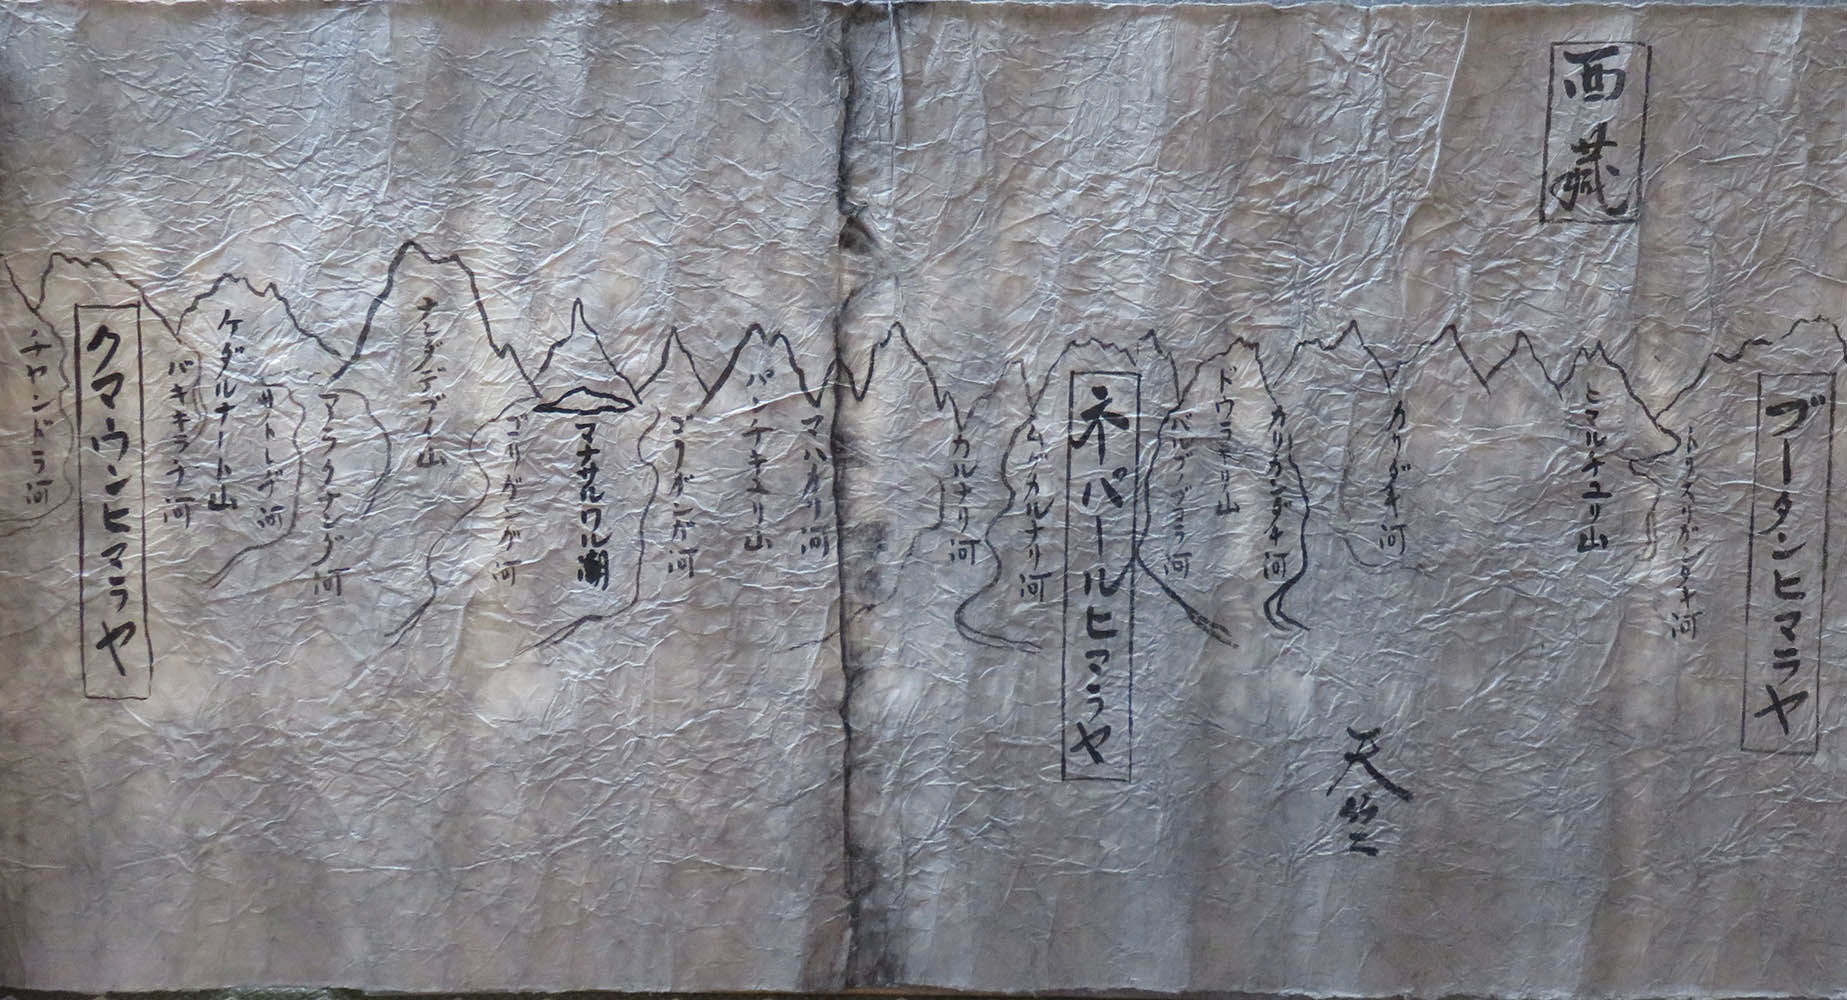 西藏
ブータンヒマラヤ
トリスリガンダキ河
ヒマルチユリ山
カリダキ河
天竺
カリガンダキ河
ドウラギリ山
ネパールヒマラヤ
ムグカルナリ河
カルナリ河
マハカリ河
パンチキユリ山
ゴリガンガ河
マナサルワル湖
ゴリガンガ河
ナンダデブイ山
アラクナンダ河
サトレヂ河
ケダルナート山
バギキラテ河
クマウンヒマラヤ
チヤンドラ河